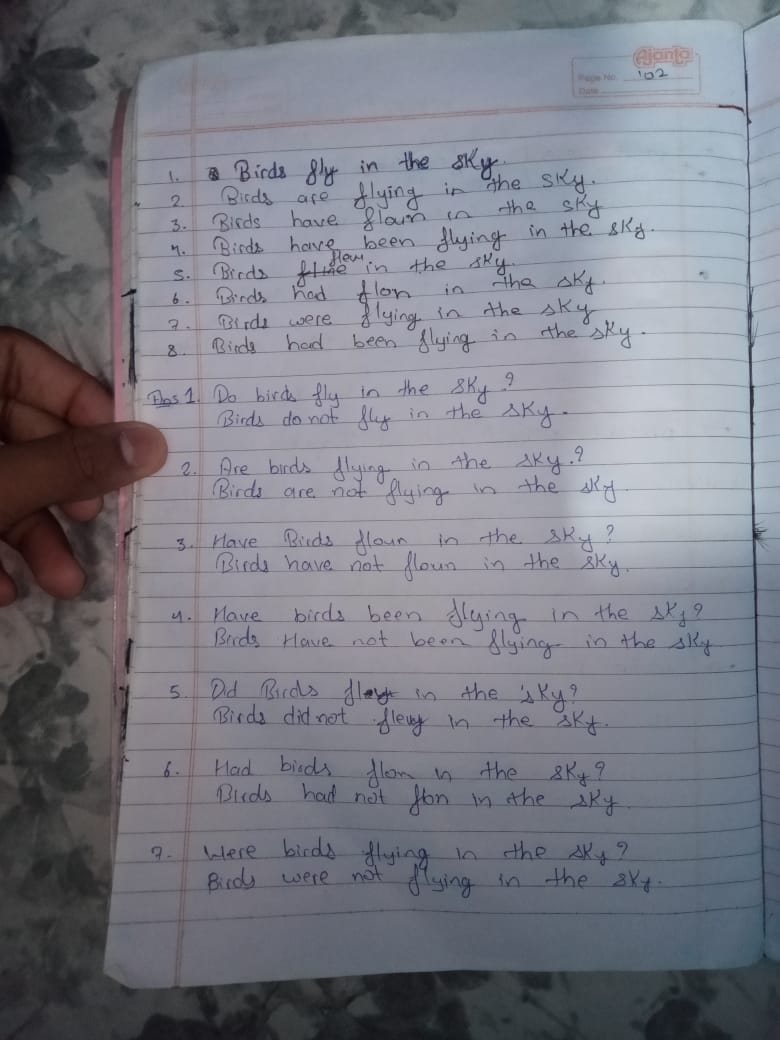 Ajanta
Page No. 102
Date
1. Birds fly in the sky.
2. Birds are flying in the sky.
3. Birds have floun in the sky
4. Birds have been flying in the sky.
5. Birds flew in the sky.
6. Birds had flon in the sky.
7. Birds were flying in the sky
8. Birds had been flying in the sky.
Ans 1. Do birds fly in the sky?
Birds do not fly in the sky.
2. Are birds flying in the sky.?
Birds are not flying in the sky
3. Have Birds floun in the sky?
Birds have not floun in the sky.
4. Have birds been flying in the sky?
Birds Have not been flying in the sky
5. Did Birds in the sky?
Birds did not flew in the sky.
6. Had birds flon in the sky?
Birds had not flon in the sky.
7. Were birds flying in the sky?
Birds were not flying in the sky.